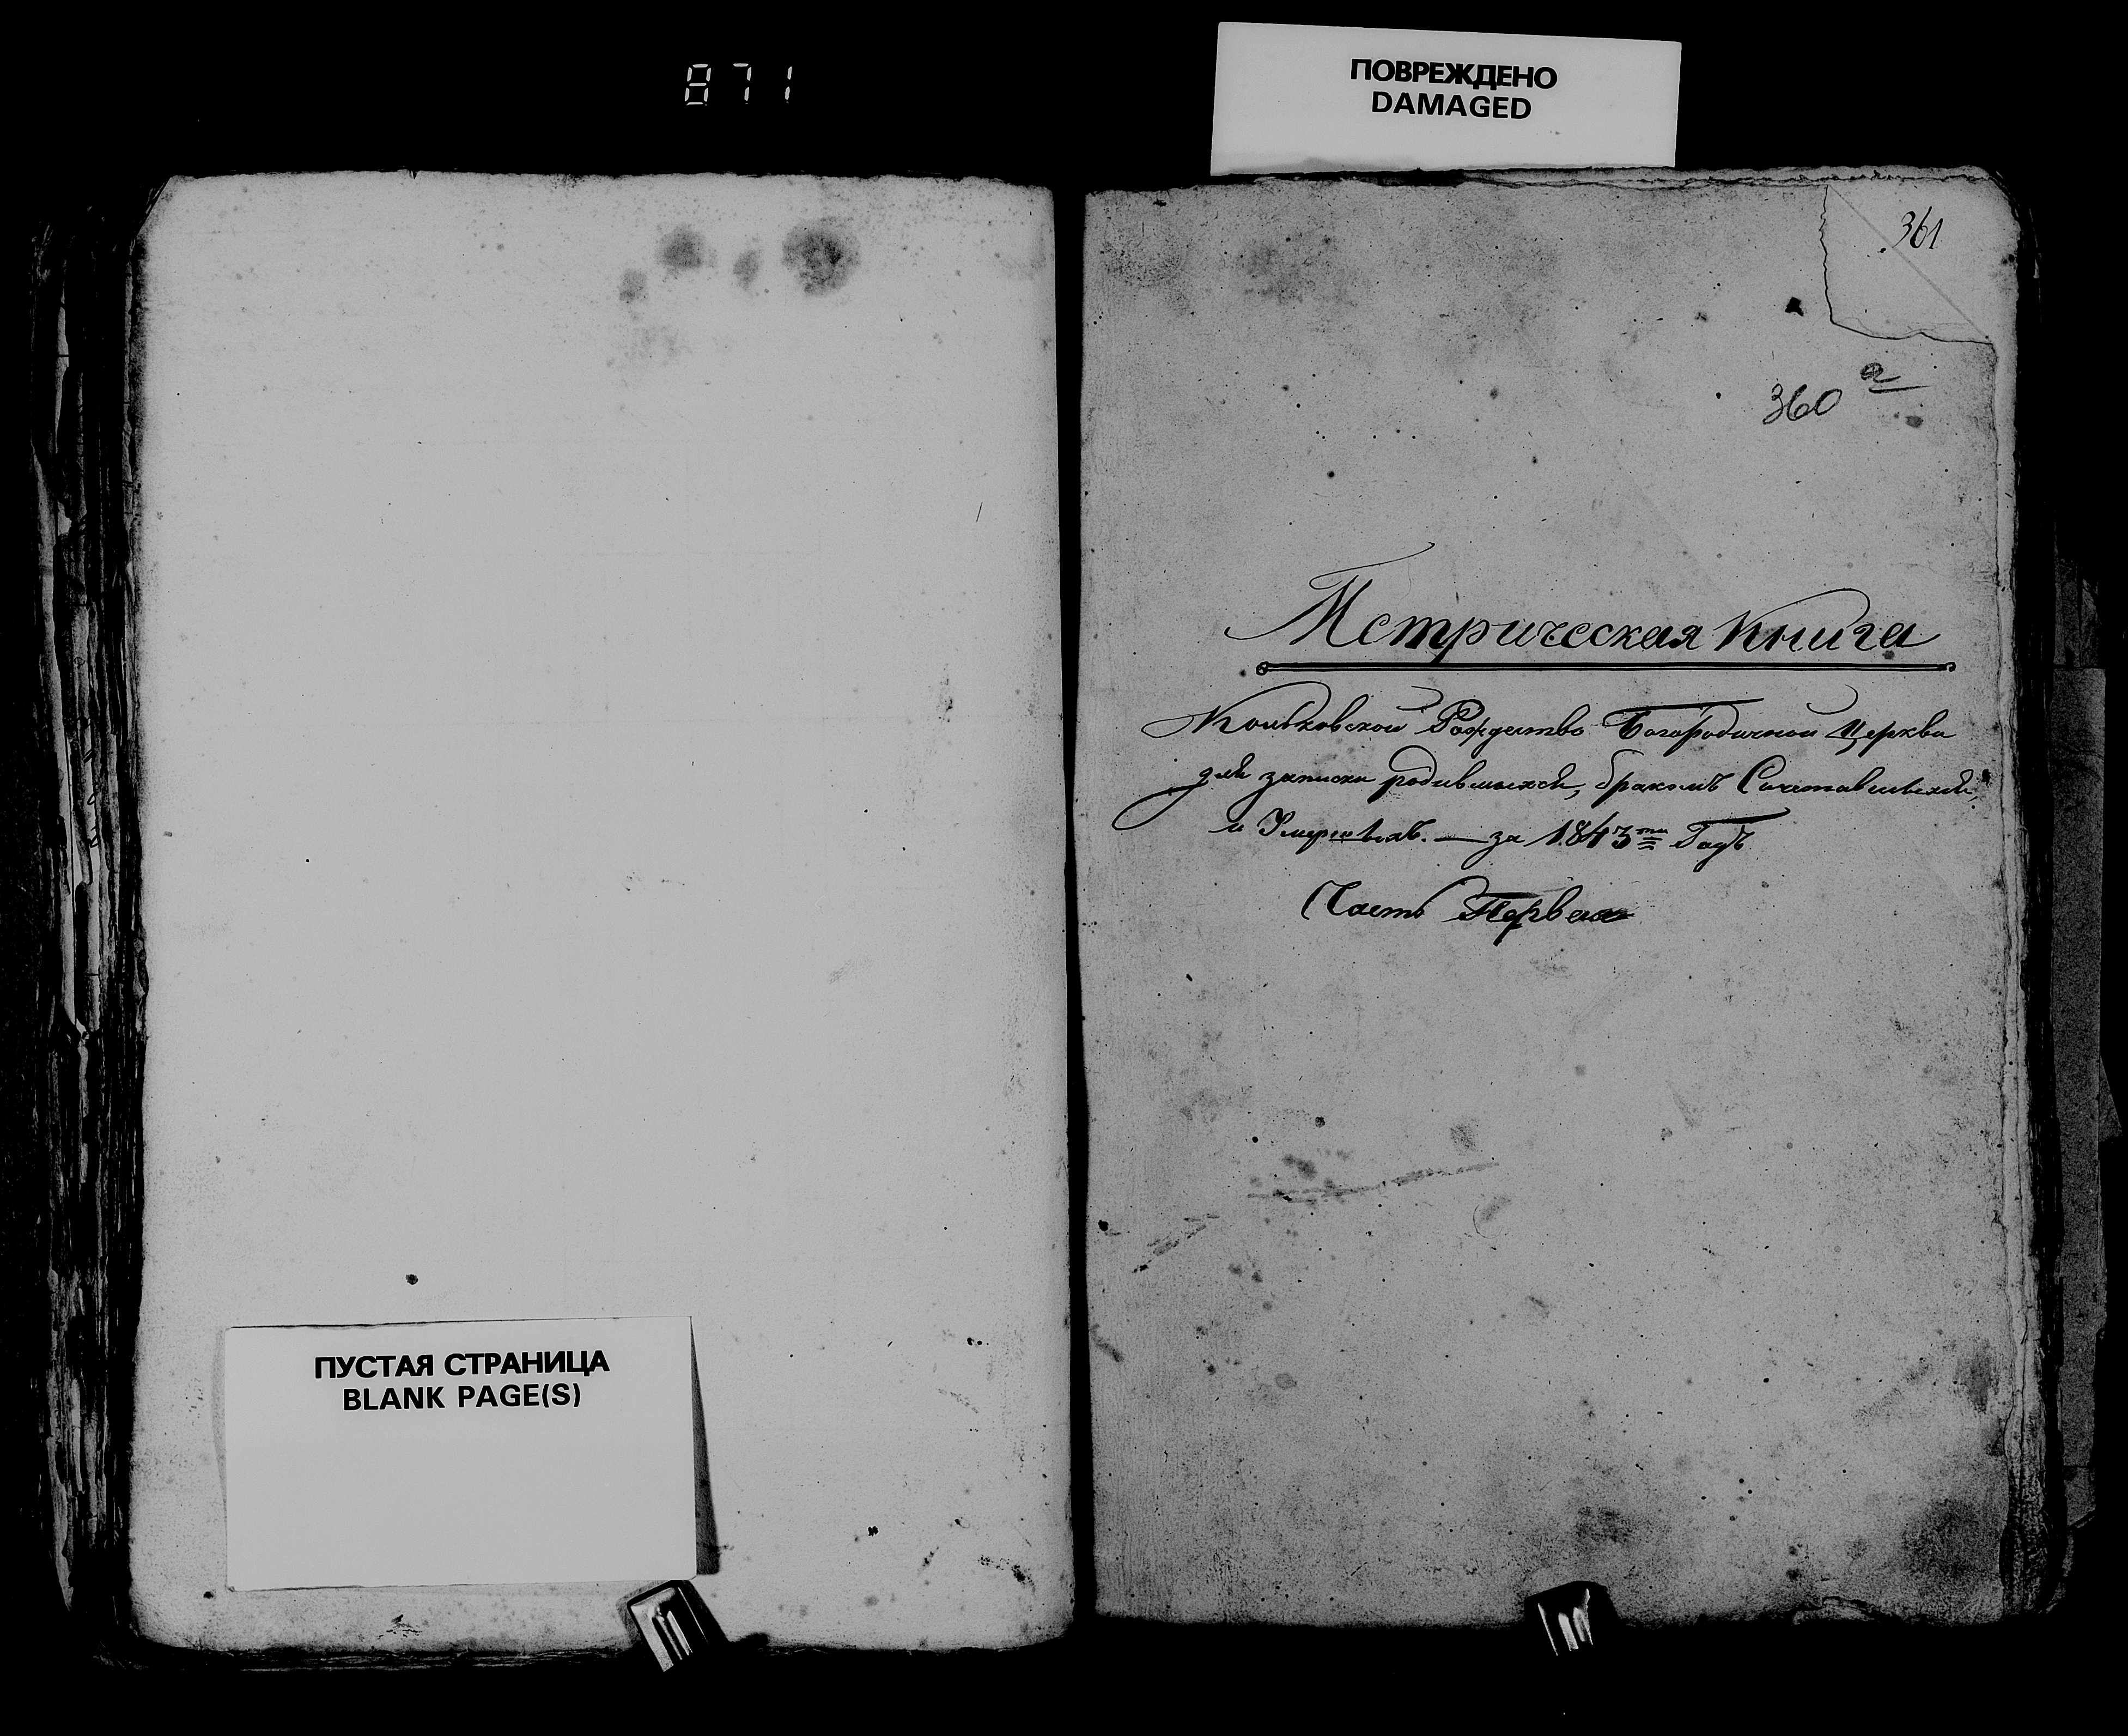 871
ПОВРЕЖДЕНО
DAMAGED
361
360 а
Метрическая книга
Кольковской Рождество Богородичной Церкви
для записки родившихся, бракомъ Сочетавшихся,
и Умершихъ. — за 1843й Годъ
Часть Первая
ПУСТАЯ СТРАНИЦА
BLANK PAGE(S)